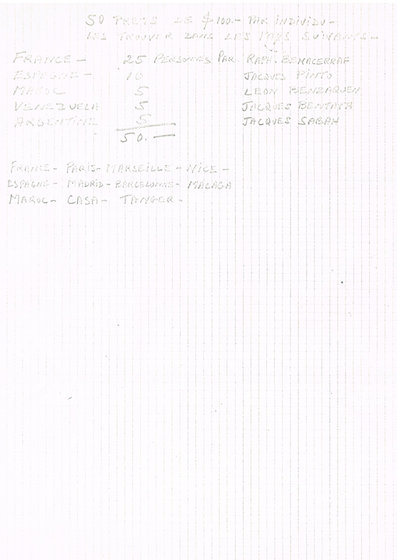 50 DE $100.- PAR INDIVIDU-
LES TROUVER DANS LES PAYS SUIVANTS-
FRANCE - 25 PERSONNES PAR RAPH. BENACERRAF
ESPAGNE - 10 JACQUES PINTO
MAROC 5 LEON BENZAQUEN
VENEZUELA 5 JACQUES BENTATA
ARGENTINE 5 JACQUES SABAH
50.-
FRANCE - PARIS - MARSEILLE - NICE -
ESPAGNE - MADRID - BARCELONNE - MALAGA
MAROC - CASA - TANGER -